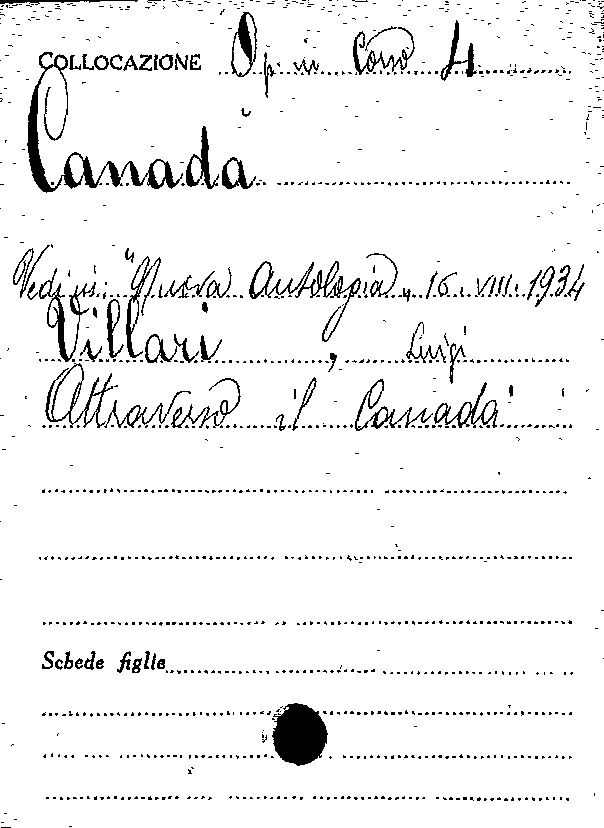 COLLOCAZIONE Op. in Corso 4
Canadà
Vedi in: "Nuova Antologia„ 16. VIII. 1934
Villari, Luigi
Attraverso il Canadà
Schede figlie